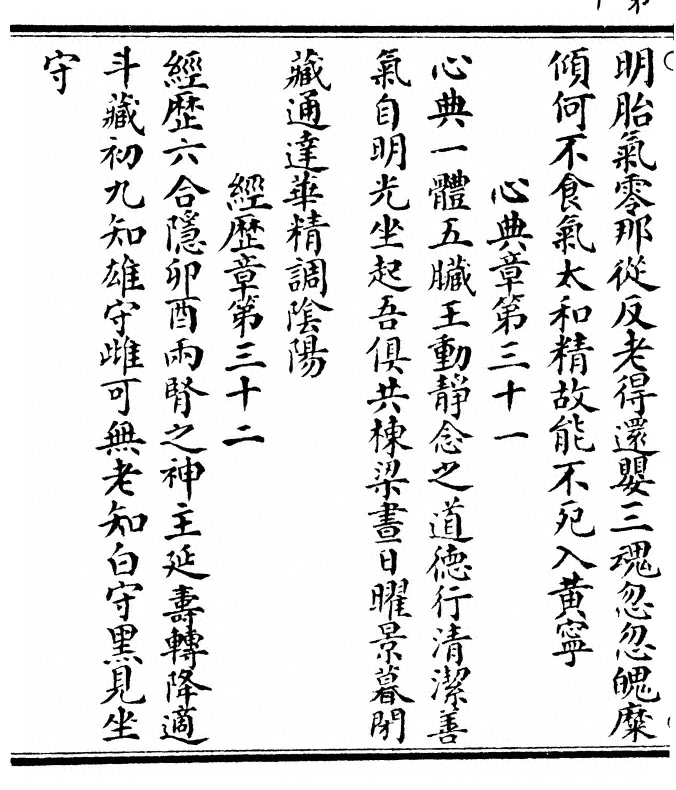 明胎氣零那從反老得還嬰三魂忽忽魄糜
傾何不食氣太和精故能不死入黃寧
心典章第三十一
心典一體五臟王動靜念之道德行清潔善
氣自明光坐起吾俱共棟梁晝日曜景暮閉
藏通達華精調陰陽
經歷章第三十二
經歷六合隱卯酉兩腎之神主延壽轉降適
斗藏初九知雄守雌可無老知白守黑見坐
守